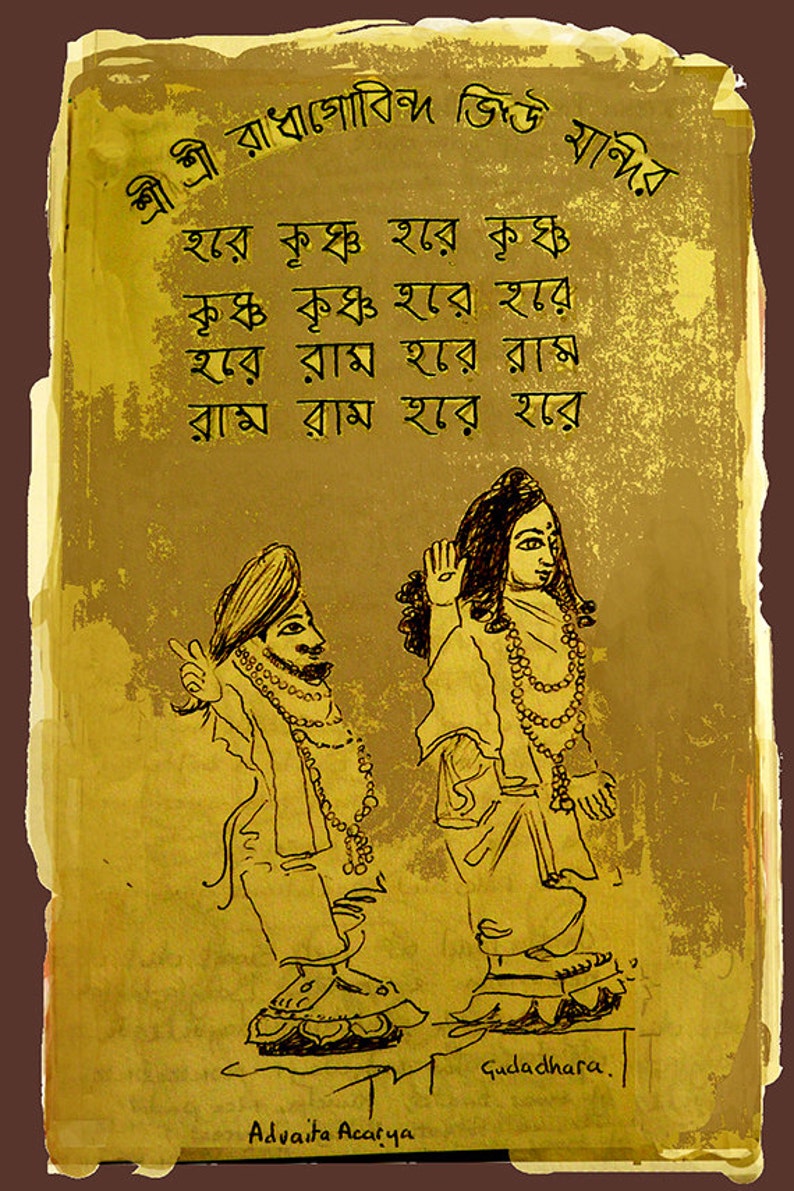 শ্রী শ্রী রাধাগোবিন্দ জিউ মন্দির
হরে কৃষ্ণ হরে কৃষ্ণ
কৃষ্ণ কৃষ্ণ হরে হরে
হরে রাম হরে রাম
রাম রাম হরে হরে
Gudadhara.
Advaita Acarya